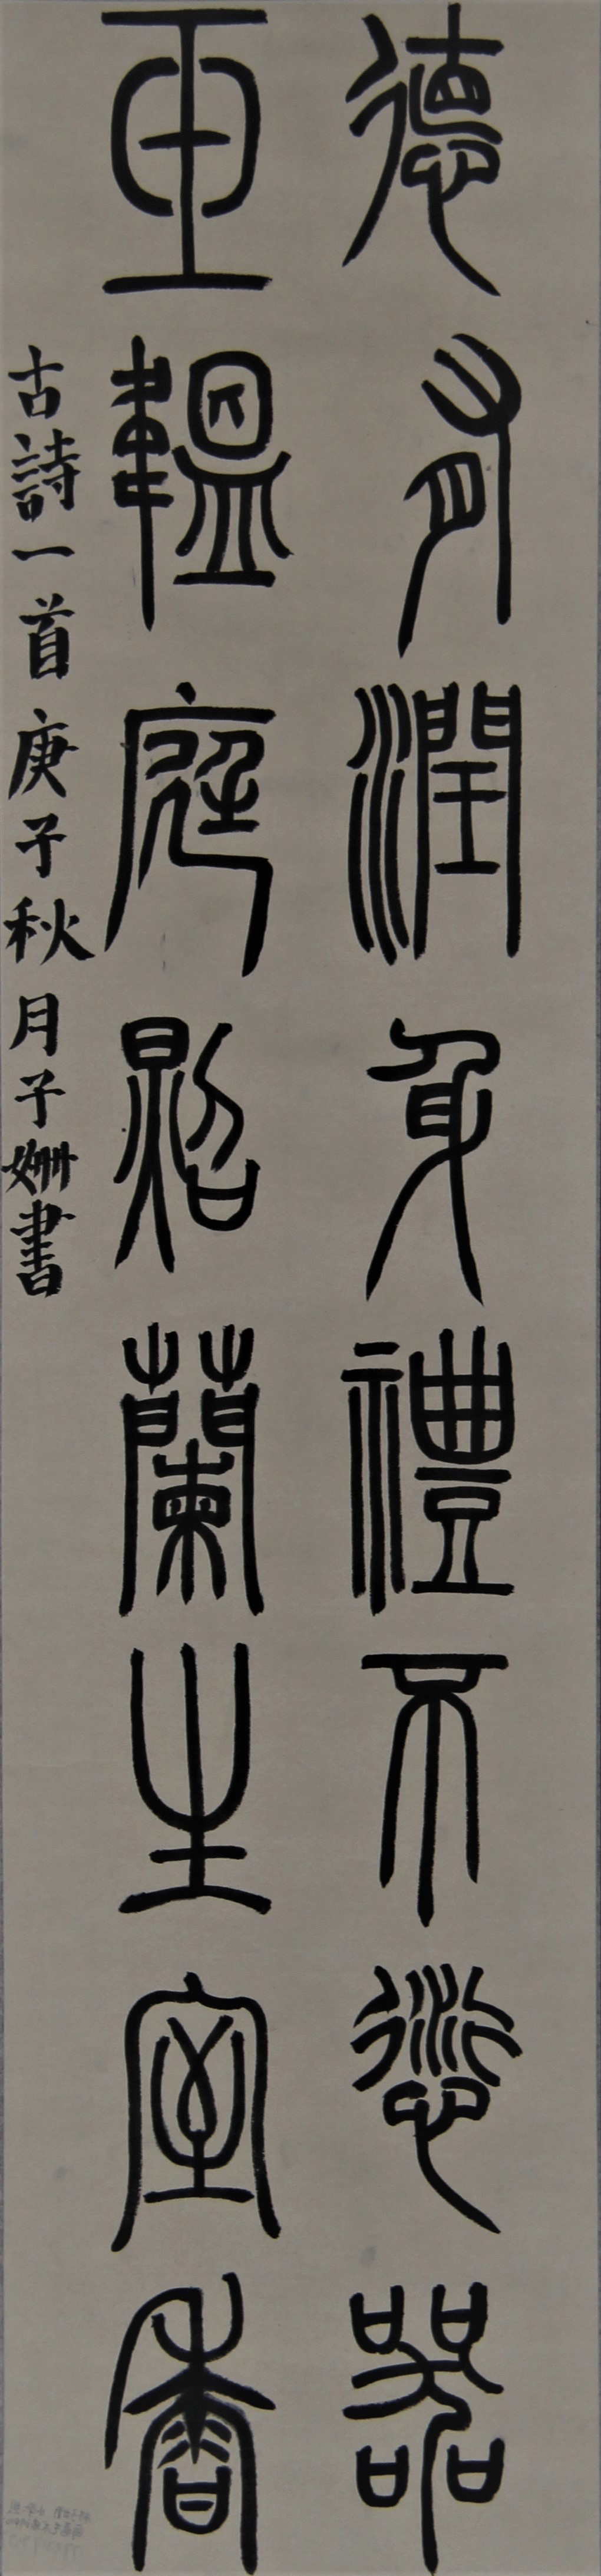 德有潤身禮不愆器
玉韞庭照蘭生室香
古詩一首庚子秋月子姍書